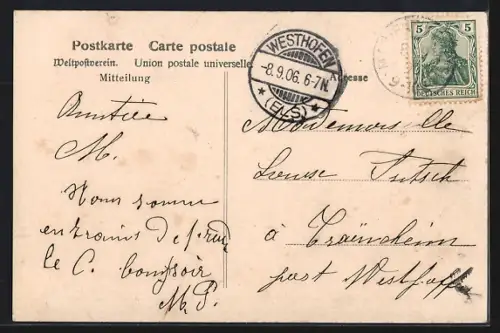 Postkarte Carte postale
Weltpostverein. Union postale universelle
Mitteilung
Adresse
WESTHOFEN
-8.9.06. 6-7N.
* (ELS) *
5 5
DEUTSCHES REICH
Amitiés
M.
Nous somm
en trains de
le C. bonsoir
M. P.
Mademoiselle
Louise Fritsch
à Traenheim
post Westhoffen